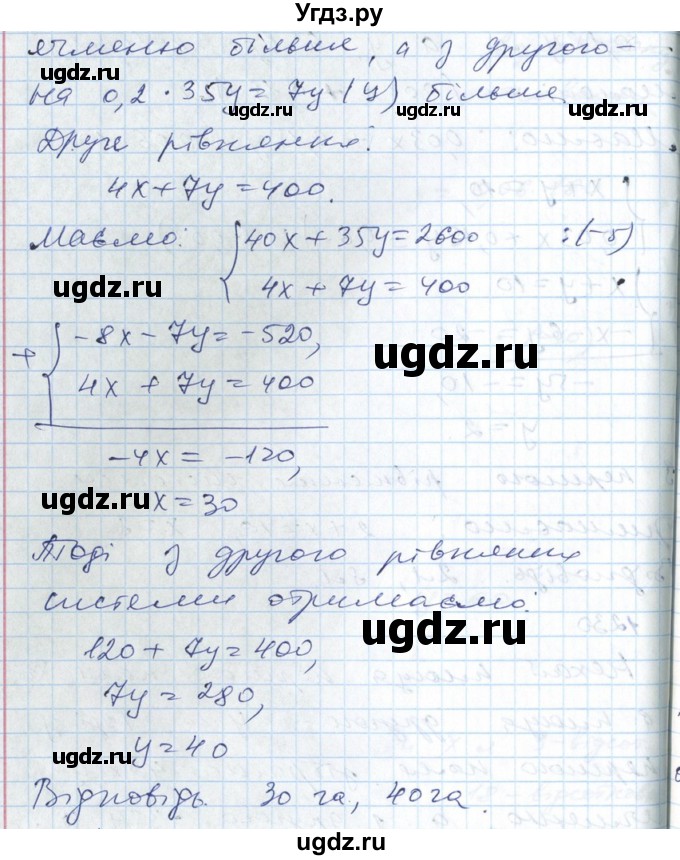 Угдз.ру
ячменю більше, а з другого –
на 0,2 · 35y = 7y (ц) більше
ugdz.ru ugdz.ru ugdz.ru
Друге рівняння:
4x + 7y = 400.
Маємо: { 40x + 35y = 2600 :(-5)
4x + 7y = 400
ugdz.ru
+ { -8x - 7y = -520,
4x + 7y = 400
ugdz.ru
-4x = -120,
ugdz.ru x = 30
Тоді з другого рівняння
системи отримаємо:
ugdz.ru
120 + 7y = 400,
7y = 280,
ugdz.ru y = 40
Відповідь 30 га, 40 га.
ugdz.ru ugdz.ru
Угдз.ру